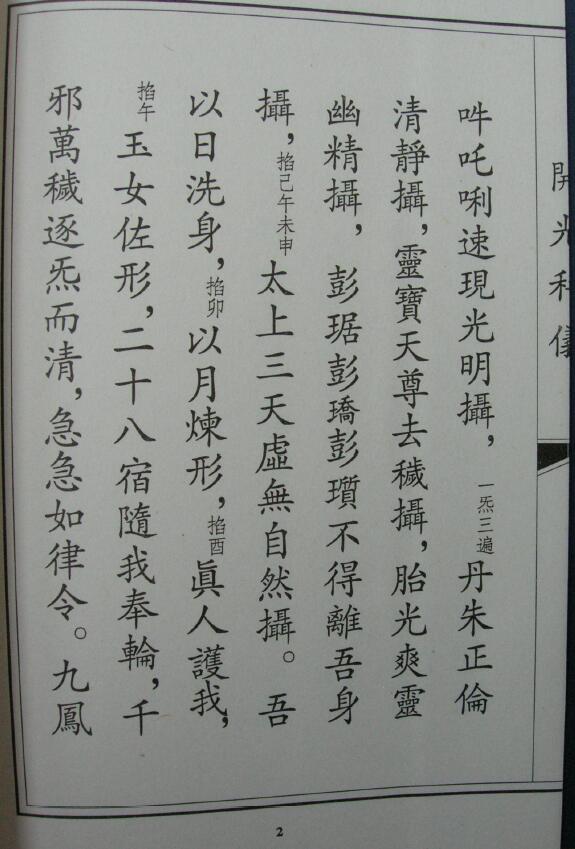 開光科儀
吽吒唎速現光明攝，一炁三遍丹朱正倫
清靜攝，靈寶天尊去穢攝，胎光爽靈
幽精攝，彭琚彭瓆彭矯不得離吾身
攝，掐己午未申太上三天虛無自然攝。吾
以日洗身，掐卯以月煉形，掐酉真人護我，
掐午玉女佐形，二十八宿隨我奉輪，千
邪萬穢逐炁而清，急急如律令。九鳳
2